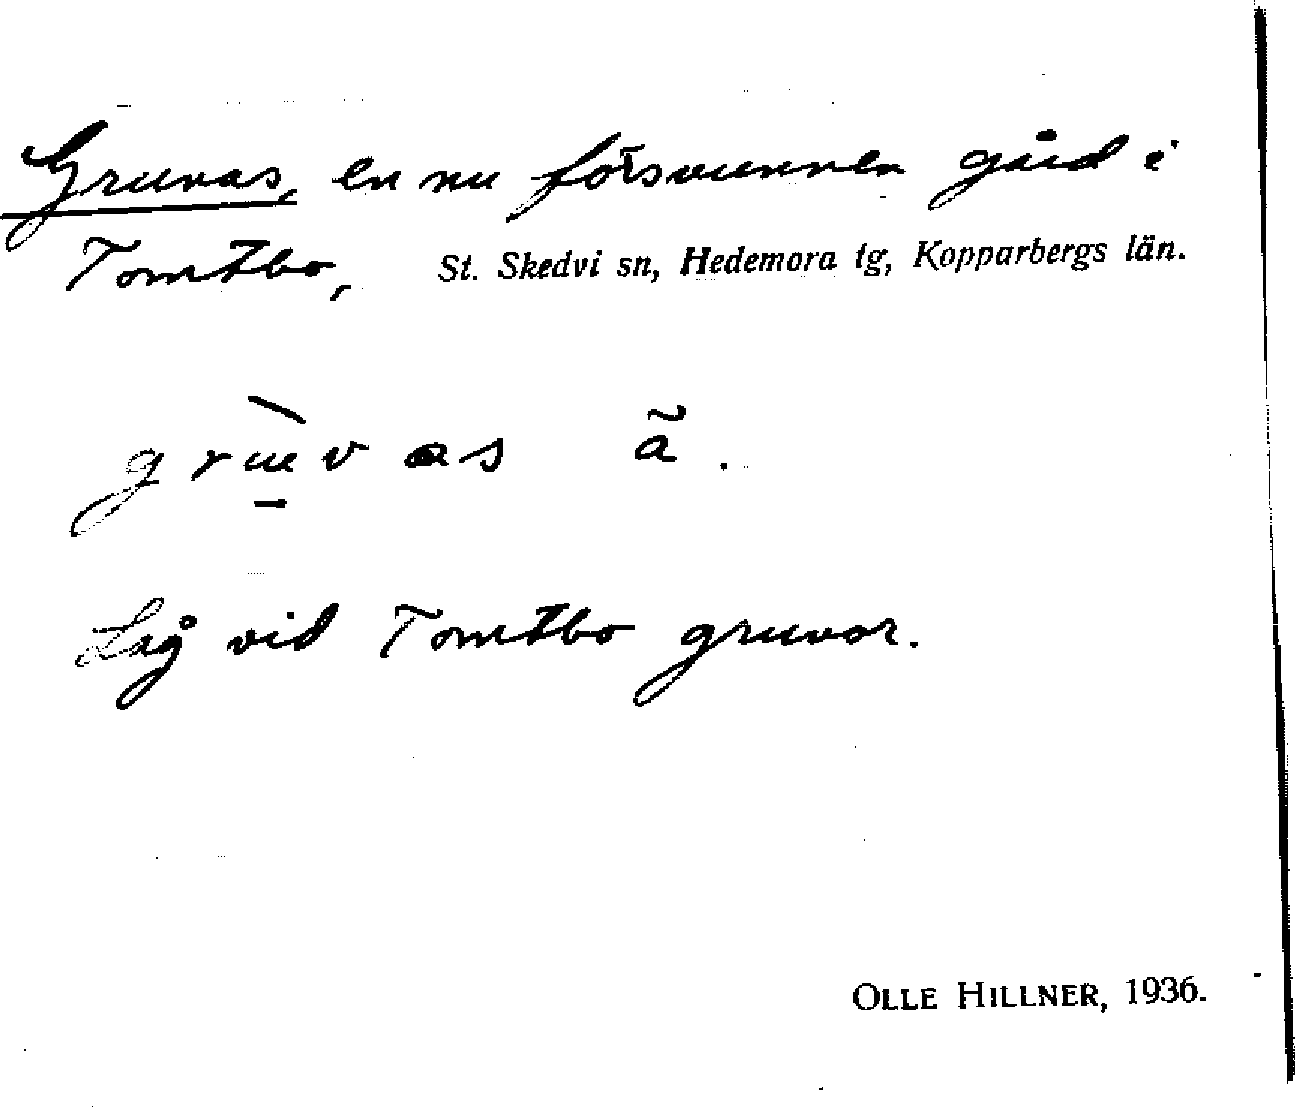 Gruvas, en nu försvunnen gård i
Tomtbo, St. Skedvi sn, Hedemora tg, Kopparbergs län.
grùvas ã.
Låg vid Tomtbo gruvor.
OLLE HILLNER, 1936.